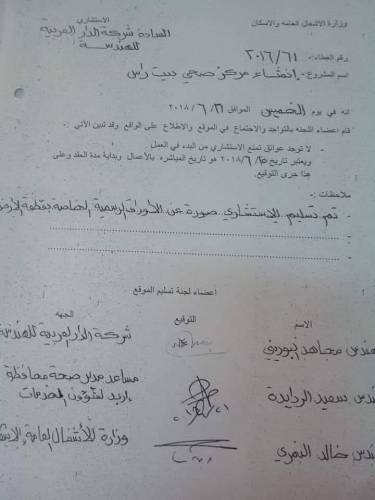 وزارة الاشغال العامه والاسكان
الاستشاري
السادة شركة الدار العربية
للهندسة
رقم العطاء:- ٢٠١٦/٦١
اسم المشروع:- إنشاء مركز صحي بيت راس
انه في يوم الخميس الموافق ٢٠١٨/٦/٢١
قام اعضاء اللجنه بالتواجد والاجتماع في الموقع والاطلاع على الواقع وقد تبين الآتي :-
- لا توجد عوائق تمنع الاستشاري من البدء في العمل
ويعتبر تاريخ ٢٠١٨/٦/٢٥ هو تاريخ المباشره بالأعمال وبداية مدة العقد وعلى
هذا جرى التوقيع.
ملاحظات :-
- تم تسليم الاستشاري صورة عن الأوراق الرسمية الخاصة بقطعة الأرض
اعضاء لجنة تسليم الموقع
الاسم التوقيع الجهه
مجاهد شركة الدار العربية للهندسة
سعيد الزايدة مساعد مدير صحة محافظة
اربد لشؤون الخدمات
خالد النمري وزارة الأشغال العامة